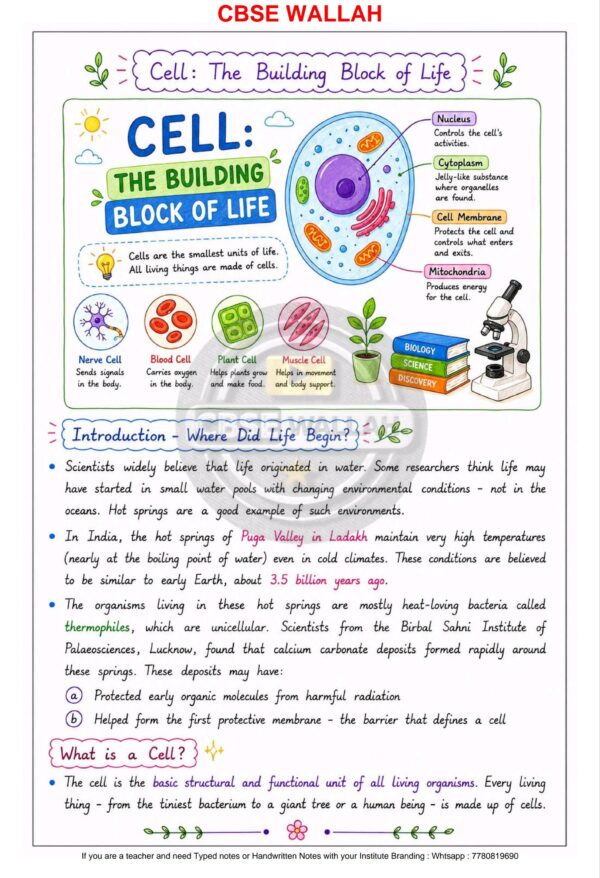 CBSE WALLAH
Cell: The Building Block of Life
CELL:
THE BUILDING
BLOCK OF LIFE
Cells are the smallest units of life.
All living things are made of cells.
Nucleus
Controls the cell's
activities.
Cytoplasm
Jelly-like substance
where organelles
are found.
Cell Membrane
Protects the cell and
controls what enters
and exits.
Mitochondria
Produces energy
for the cell.
Nerve Cell
Sends signals
in the body.
Blood Cell
Carries oxygen
in the body.
Plant Cell
Helps plants grow
and make food.
Muscle Cell
Helps in movement
and body support.
BIOLOGY
SCIENCE
DISCOVERY
CBSE WALLAH
Introduction - Where Did Life Begin?
• Scientists widely believe that life originated in water. Some researchers think life may
have started in small water pools with changing environmental conditions - not in the
oceans. Hot springs are a good example of such environments.
• In India, the hot springs of Puga Valley in Ladakh maintain very high temperatures
(nearly at the boiling point of water) even in cold climates. These conditions are believed
to be similar to early Earth, about 3.5 billion years ago.
• The organisms living in these hot springs are mostly heat-loving bacteria called
thermophiles, which are unicellular. Scientists from the Birbal Sahni Institute of
Palaeosciences, Lucknow, found that calcium carbonate deposits formed rapidly around
these springs. These deposits may have:
a Protected early organic molecules from harmful radiation
b Helped form the first protective membrane - the barrier that defines a cell
What is a Cell?
• The cell is the basic structural and functional unit of all living organisms. Every living
thing - from the tiniest bacterium to a giant tree or a human being - is made up of cells.
If you are a teacher and need Typed notes or Handwritten Notes with your Institute Branding : Whtsapp : 7780819690